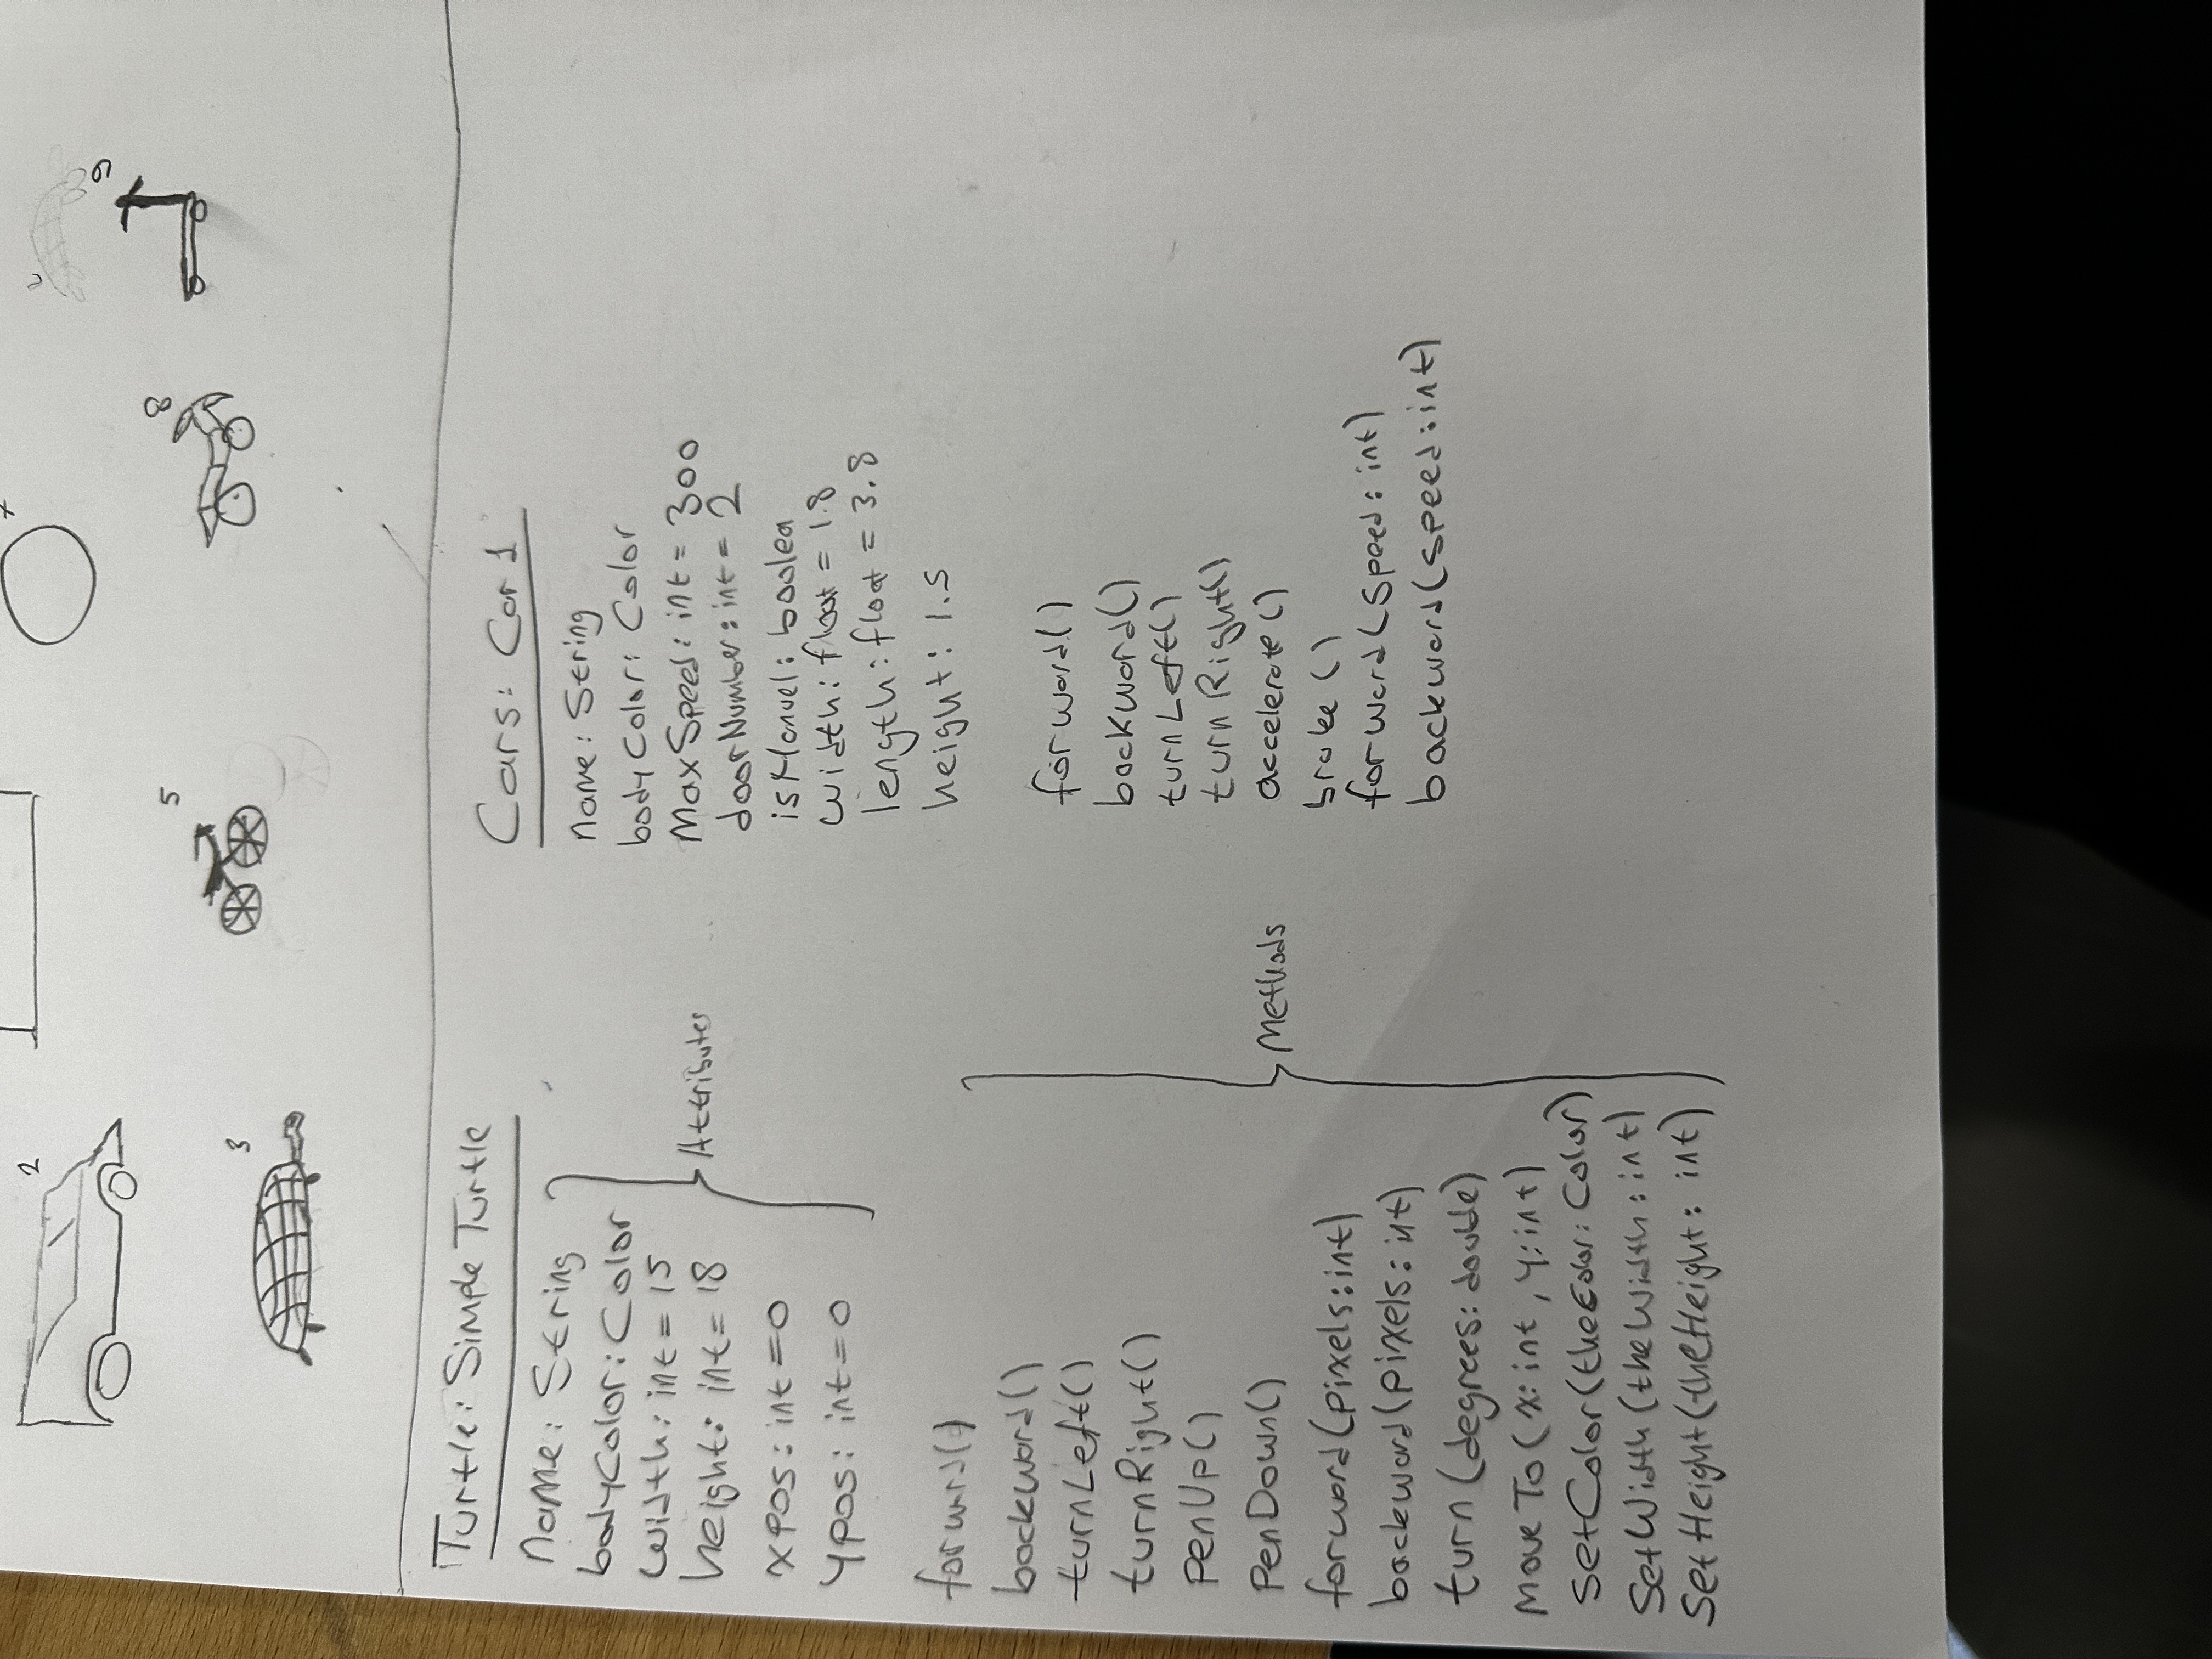 2
7
5
8
9
3
Turtle: Simple Turtle
name: String
bodyColor: Color
width: int = 15
height: int = 18
xPos: int = 0
yPos: int = 0
Attributes
forward()
backward()
turnLeft()
turnRight()
penUp()
penDown()
forward(pixels: int)
backward(pixels: int)
turn(degrees: double)
moveTo(x: int, y: int)
setColor(theColor: Color)
setWidth(theWidth: int)
setHeight(theHeight: int)
Methods
Cars: Car 1
name: String
bodyColor: Color
MaxSpeed: int = 300
doorNumber: int = 2
isManuel: boolea
width: float = 1.8
length: float = 3.8
height: 1.5
forward()
backward()
turnLeft()
turnRight()
accelerate()
brake()
forward(speed: int)
backward(speed: int)